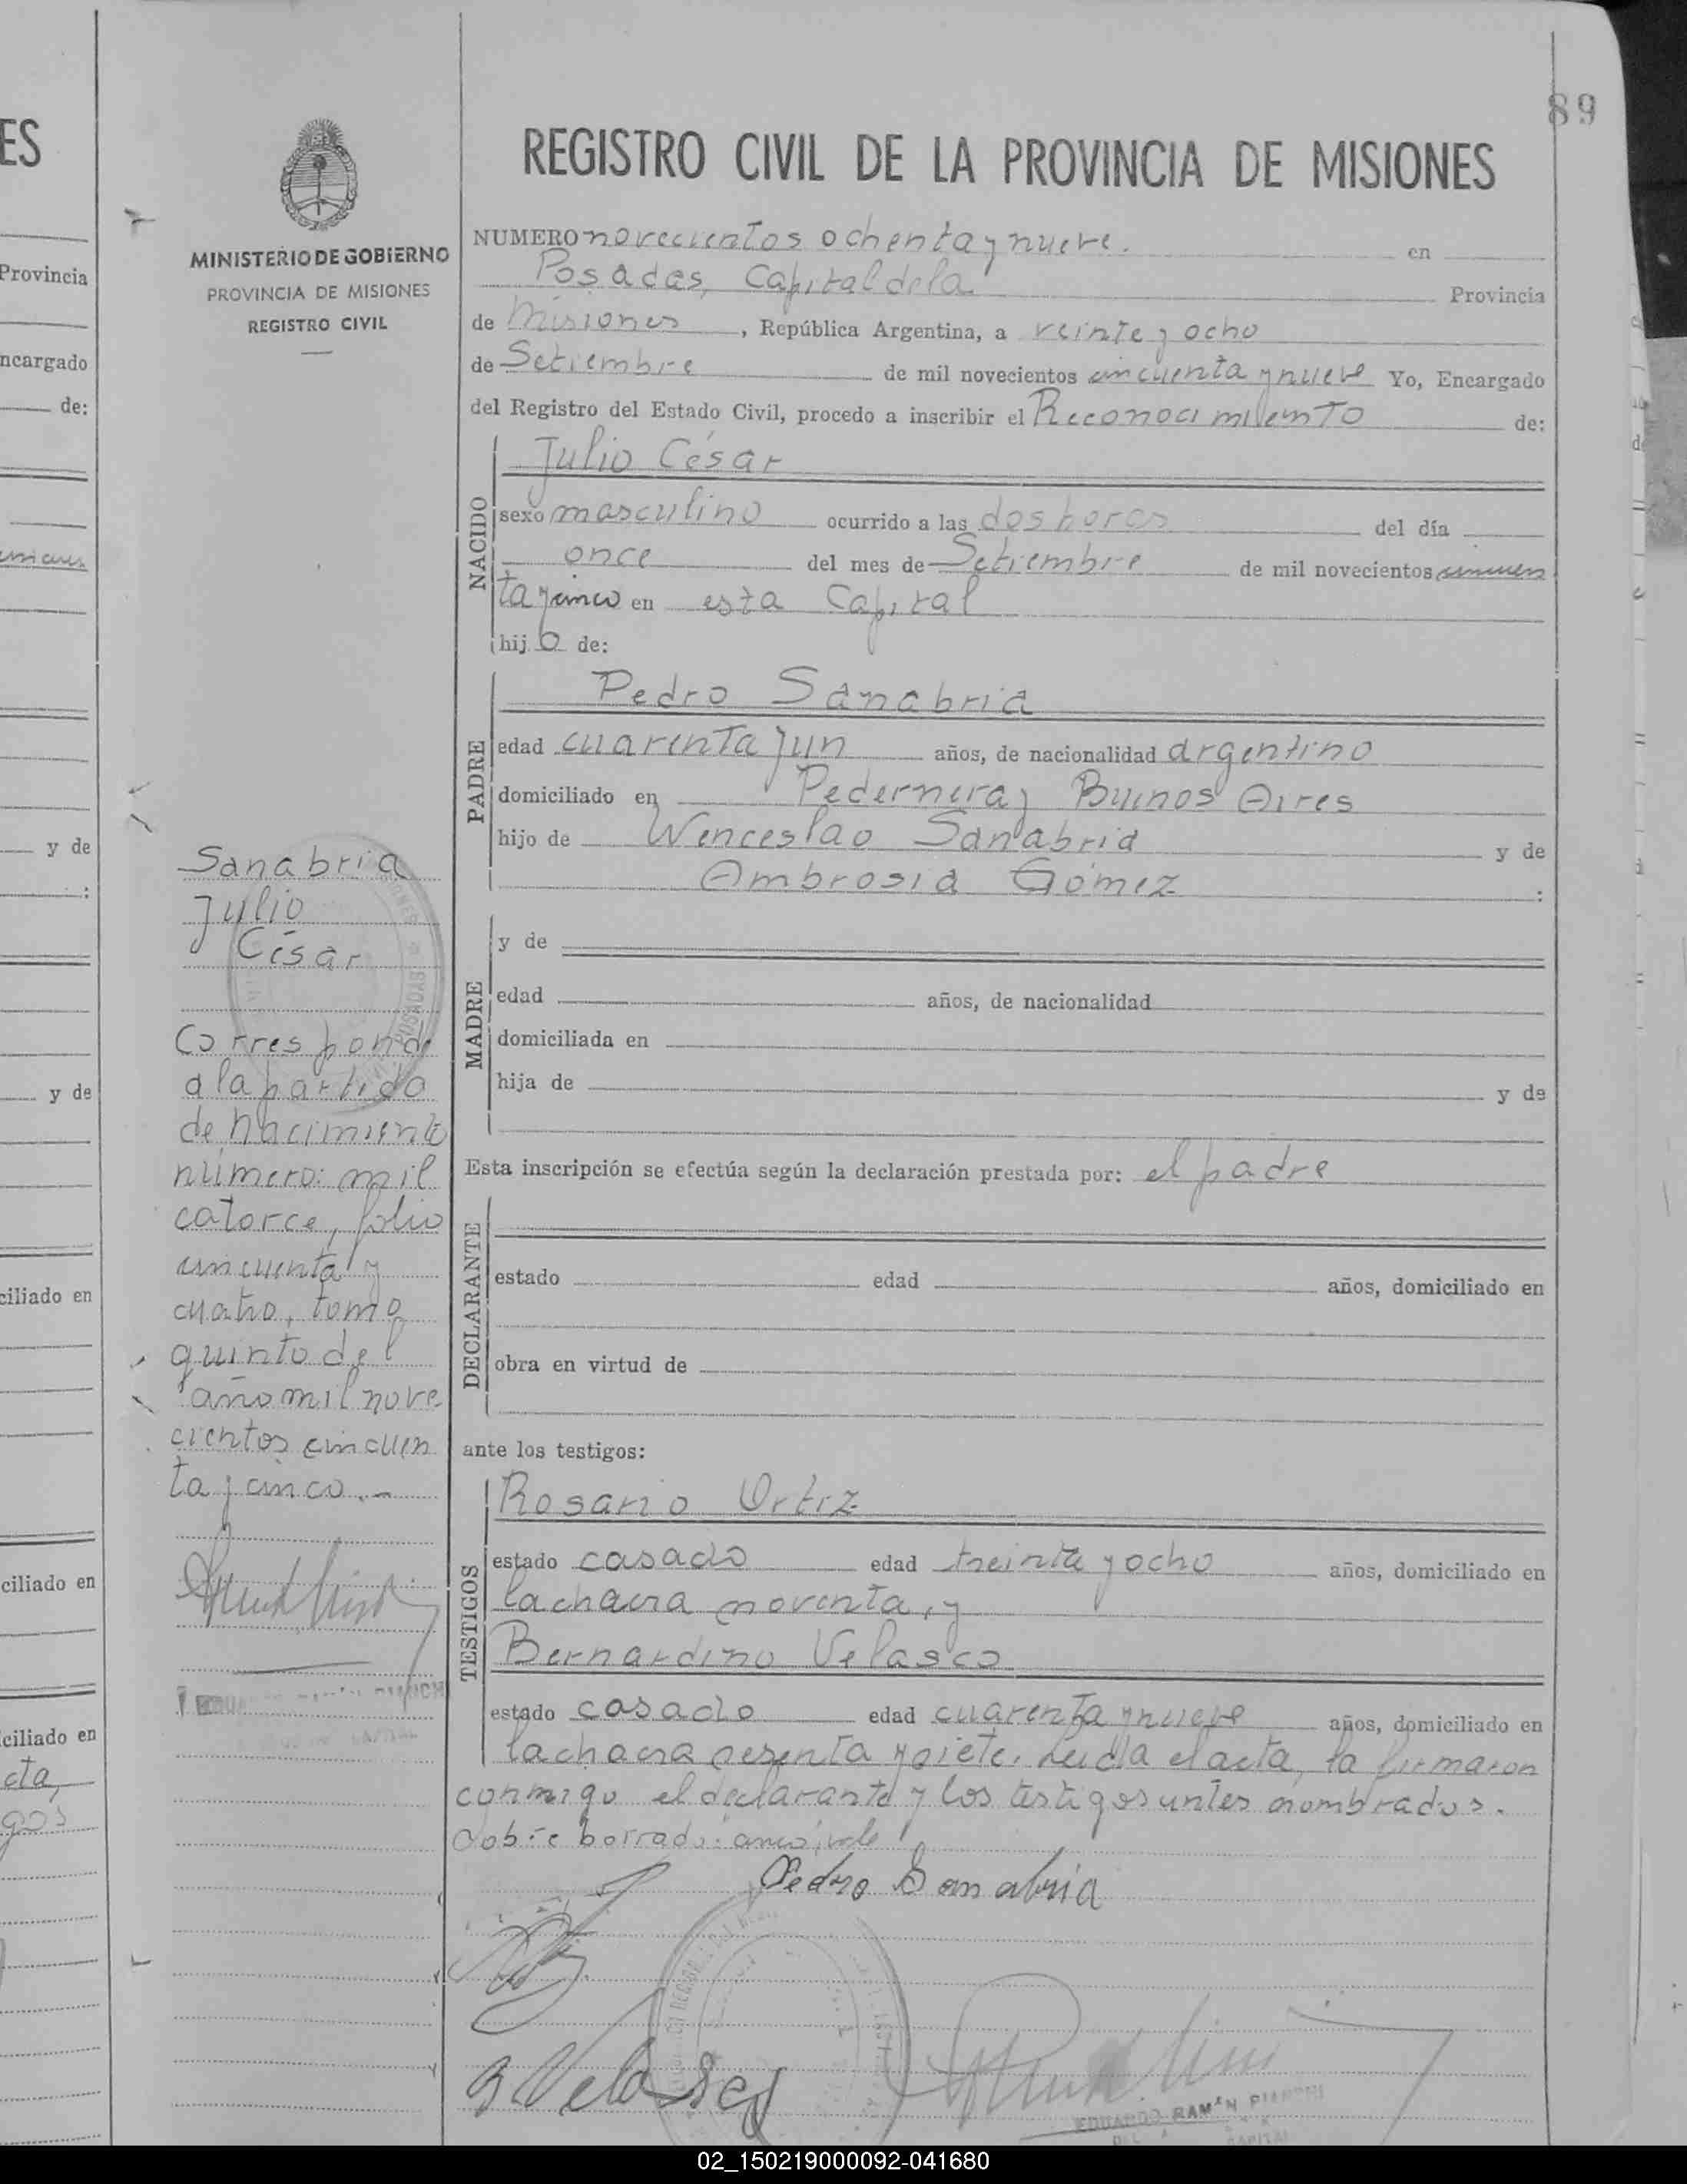 89
REGISTRO CIVIL DE LA PROVINCIA DE MISIONES
MINISTERIO DE GOBIERNO
PROVINCIA DE MISIONES
REGISTRO CIVIL
NUMERO novecientos ochenta y nueve. en
Posadas, Capital de la Provincia
de Misiones, República Argentina, a veinte y ocho
de Setiembre de mil novecientos cincuenta y nueve Yo, Encargado
del Registro del Estado Civil, procedo a inscribir el Reconocimiento de:
NACIDO
Julio César
sexo masculino ocurrido a las dos horas del día
once del mes de Setiembre de mil novecientos cincuen
ta y cinco en esta Capital
hijo de:
PADRE
Pedro Sanabria
edad cuarenta y un años, de nacionalidad argentino
domiciliado en Pedernera y Buenos Aires
hijo de Wenceslao Sanabria y de
Ambrosia Gómez :
MADRE
y de
edad años, de nacionalidad
domiciliada en
hija de y de
Esta inscripción se efectúa según la declaración prestada por: el padre
DECLARANTE
estado edad años, domiciliado en
obra en virtud de
ante los testigos:
TESTIGOS
Rosario Ortiz
estado casado edad treinta y ocho años, domiciliado en
la chacra noventa, y
Bernardino Velasco
estado casado edad cuarenta y nueve años, domiciliado en
la chacra sesenta y siete. Leida el acta, la firmaron
conmigo el declarante y los testigos antes nombrados.
Sobre borrado: cinco, vale
Pedro Sanabria
B Velasco
EDUARDO RAMON
CAPITAL
Sanabria
Julio
César
Corresponde
a la partida
de nacimiento
número: mil
catorce, folio
cincuenta y
cuatro, tomo
quinto del
año mil nove
cientos cincuen
ta y cinco.-
ES
Provincia
ncargado
de:
y de
:
y de
ciliado en
ciliado en
ciliado en
cta,
gos
02_150219000092-041680